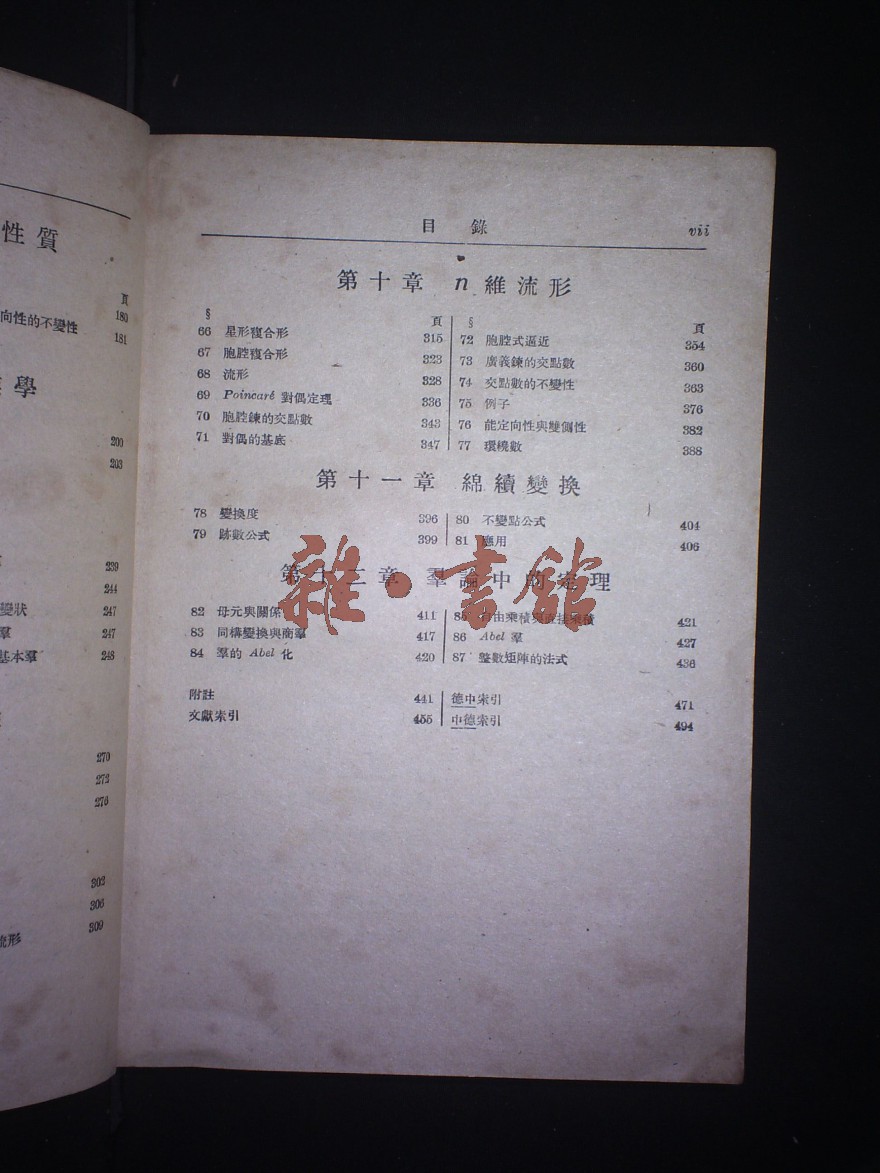 性質
頁
向性的不變性 180
181
學
200
203
239
244
變狀 247
羣 247
基本羣 248
270
272
276
302
306
流形 309
目錄 vii
第十章 n 維流形
§ 頁
66 星形複合形 315
67 胞腔複合形 323
68 流形 328
69 Poincaré 對偶定理 336
70 胞腔鍊的交點數 343
71 對偶的基底 347
§ 頁
72 胞腔式逼近 354
73 廣義鍊的交點數 360
74 交點數的不變性 363
75 例子 376
76 能定向性與雙側性 382
77 環繞數 388
第十一章 綿續變換
78 變換度 396
79 跡數公式 399
80 不變點公式 404
81 應用 406
第十二章 羣論中的定理
82 母元與關係 411
83 同構變換與商羣 417
84 羣的 Abel 化 420
85 自由乘積與直接乘積 421
86 Abel 羣 427
87 整數矩陣的法式 436
附註 441
文獻索引 455
德中索引 471
中德索引 494
雜·書館